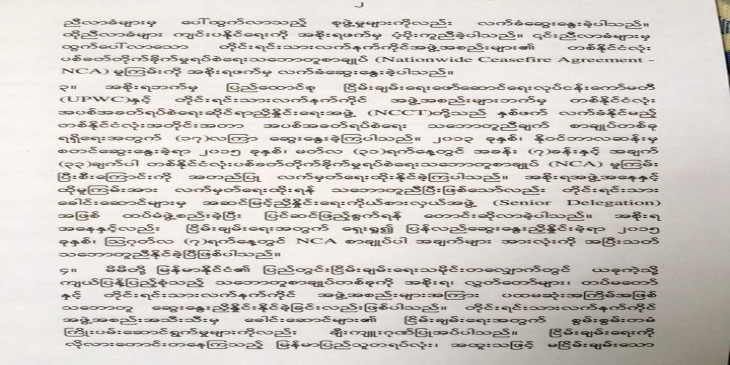 ၂
ညီလာခံများမှ ပေါ်ထွက်လာသည့် စုဖွဲ့မှုများကိုလည်း လက်ခံဆွေးနွေးခဲ့ပါသည်။
ထိုညီလာခံများ ကျင်းပနိုင်ရေးကို အစိုးရဖက်မှ ပံ့ပိုးကူညီခဲ့ပါသည်။ ၎င်းညီလာခံများမှ
ထွက်ပေါ်လာသော တိုင်းရင်းသားလက်နက်ကိုင်အဖွဲ့အစည်းများ၏ တစ်နိုင်ငံလုံး
ပစ်ခတ်တိုက်ခိုက်မှုရပ်စဲရေးသဘောတူစာချုပ် (Nationwide Ceasefire Agreement -
NCA) မူကြမ်းကို အစိုးရဖက်မှ လက်ခံဆွေးနွေးခဲ့ပါသည်။
၃။ အစိုးရဘက်မှ ပြည်ထောင်စု ငြိမ်းချမ်းရေးဖော်ဆောင်ရေးလုပ်ငန်းကော်မတီ
(UPWC)နှင့် တိုင်းရင်းသားလက်နက်ကိုင် အဖွဲ့အစည်းများဘက်မှ တစ်နိုင်ငံလုံး
အပစ်အခတ်ရပ်စဲရေးဆိုင်ရာညှိနှိုင်းရေးအဖွဲ့ (NCCT)တို့သည် နှစ်ဖက် လက်ခံနိုင်မည့်
တစ်နိုင်ငံလုံးအတိုင်းအတာ အပစ်အခတ်ရပ်စဲရေး သဘောတူညီချက် စာချုပ်တစ်ခု
ရရှိရေးအတွက် (၁၇)လကြာ ဆွေးနွေးခဲ့ကြပါသည်။ ၂၀၁၃ ခုနှစ်၊ နိုဝင်ဘာလဆန်းမှ
စတင်ဆွေးနွေးခဲ့ရာ ၂၀၁၅ ခုနှစ်၊ မတ်လ (၃၁)ရက်နေ့တွင် အခန်း (၇)ခန်းနှင့် အချက်
(၃၃)ချက်ပါ တစ်နိုင်ငံလုံးပစ်ခတ်တိုက်ခိုက်မှုရပ်စဲရေးသဘောတူစာချုပ် (NCA) မူကြမ်း
ပြီးစီးကြောင်းကို အတည်ပြု လက်မှတ်ရေးထိုးနိုင်ခဲ့ကြပါသည်။ အစိုးရအဖွဲ့အနေနှင့်
ထိုမူကြမ်းအား လက်မှတ်ရေးထိုးရန် သဘောတူညီပြီးဖြစ်သော်လည်း တိုင်းရင်းသား
ခေါင်းဆောင်များမှ အဆင့်မြင့်ညှိနှိုင်းရေးကိုယ်စားလှယ်အဖွဲ့ (Senior Delegation)
အဖြစ် ထပ်မံဖွဲ့စည်းခဲ့ပြီး ပြင်ဆင်ဖြည့်စွက်ရန် တောင်းဆိုလာခဲ့ပါသည်။ အစိုးရ
အနေနှင့်လည်း ငြိမ်းချမ်းရေးအတွက် ရှေးရှု၍ ပြန်လည်ဆွေးနွေး ညှိနှိုင်းခဲ့ရာ ၂၀၁၅
ခုနှစ်၊ ဩဂုတ်လ (၇)ရက်နေ့တွင် NCA စာချုပ်ပါ အချက်များ အားလုံးကို အပြီးသတ်
သဘောတူညီနိုင်ခဲ့ပြီဖြစ်ပါသည်။
၄။ မိမိတို့ မြန်မာနိုင်ငံ၏ ပြည်တွင်းငြိမ်းချမ်းရေးသမိုင်းတလျှောက်တွင် ယခုကဲ့သို့
ကျယ်ပြန့်ပြည့်စုံသည့် သဘောတူစာချုပ်တစ်ခုကို အစိုးရ၊ လွှတ်တော်များ၊ တပ်မတော်
နှင့် တိုင်းရင်းသားလက်နက်ကိုင် အဖွဲ့အစည်းများအကြား ပထမဆုံးအကြိမ်အဖြစ်
သဘောတူ ဆွေးနွေးညှိနှိုင်းနိုင်ခဲ့ခြင်းလည်းဖြစ်ပါသည်။ တိုင်းရင်းသားလက်နက်ကိုင်
အဖွဲ့အစည်းအသီးသီးမှ ခေါင်းဆောင်များ၏ ငြိမ်းချမ်းရေးအတွက် စွမ်းစွမ်းတမံ
ကြိုးပမ်းဆောင်ရွက်မှုများကိုလည်း ချီးကျူးဂုဏ်ပြုအပ်ပါသည်။ ငြိမ်းချမ်းရေးကို
လိုလားတောင်းတနေကြသည့် မြန်မာပြည်သူတရပ်လုံး၊ အထူးသဖြင့် မငြိမ်းချမ်းသော